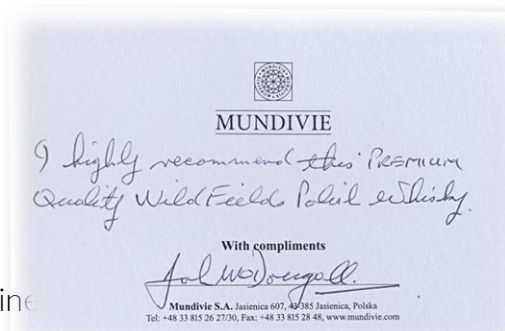 MUNDIVIE
I highly recommend this PREMIUM
Quality Wild Fields Polish Whisky.
With compliments
John McDougall.
Mundivie S.A. Jasienica 607, 43-385 Jasienica, Polska
Tel: +48 33 815 26 27/30, Fax: +48 33 815 28 48, www.mundivie.com
ine